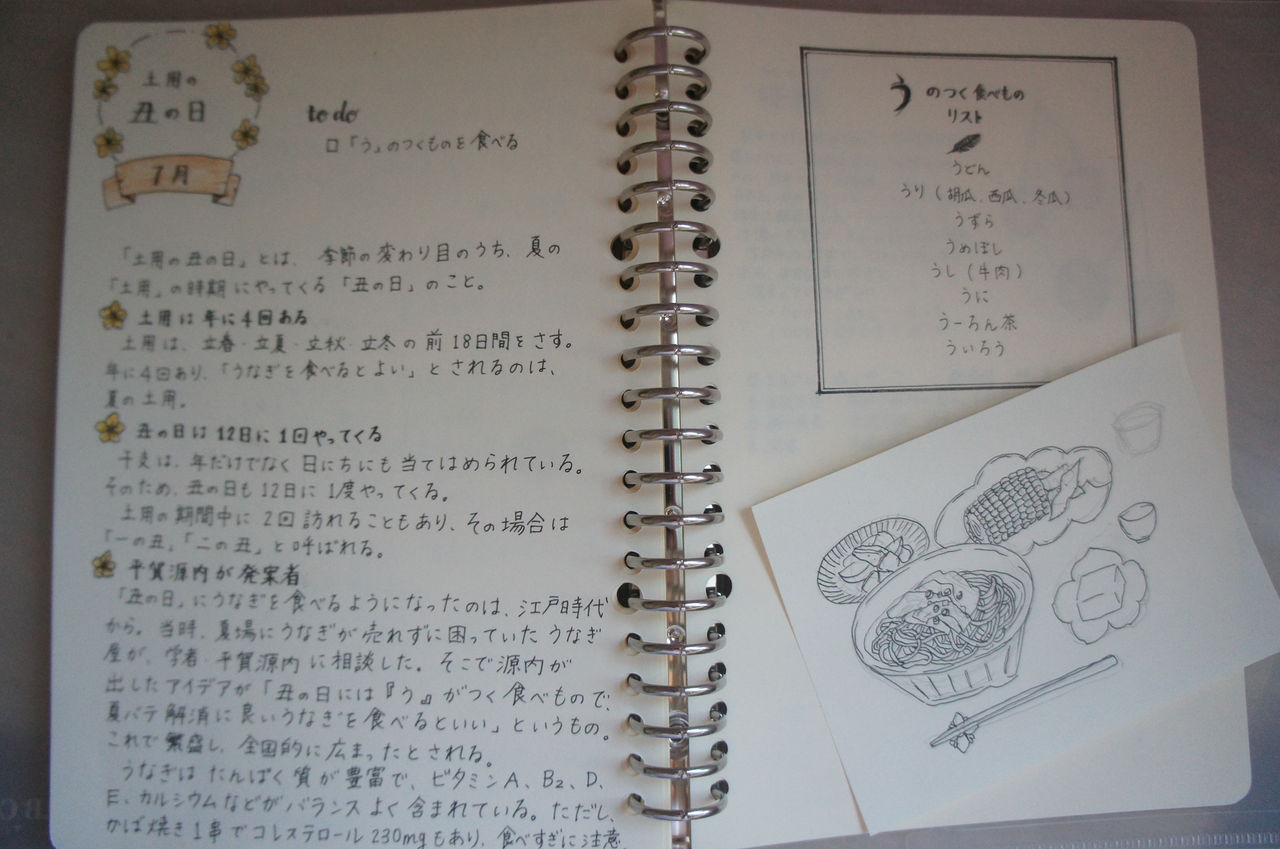 土用の
丑の日
7月
to do
□「う」のつくものを食べる
「土用の丑の日」とは、季節の変わり目のうち、夏の
「土用」の時期にやってくる「丑の日」のこと。
土用は年に4回ある
土用は、立春・立夏・立秋・立冬の前18日間をさす。
年に4回あり、「うなぎを食べるとよい」とされるのは、
夏の土用。
丑の日は12日に1回やってくる
干支は、年だけでなく日にちにも当てはめられている。
そのため、丑の日も12日に1度やってくる。
土用の期間中に2回訪れることもあり、その場合は
「一の丑」「二の丑」と呼ばれる。
平賀源内が発案者
「丑の日」にうなぎを食べるようになったのは、江戸時代
から。当時、夏場にうなぎが売れずに困っていたうなぎ
屋が、学者・平賀源内に相談した。そこで源内が
出したアイデアが「丑の日には『う』がつく食べもので、
夏バテ解消に良いうなぎを食べるといい」というもの。
これで繁盛し、全国的に広まったとされる。
うなぎはたんぱく質が豊富で、ビタミンA、B2、D、
E、カルシウムなどがバランスよく含まれている。ただし、
かば焼き1串でコレステロール230mgもあり、食べすぎに注意。
うのつく食べもの
リスト
うどん
うり（胡瓜、西瓜、冬瓜）
うずら
うめぼし
うし（牛肉）
うに
うーろん茶
ういろう